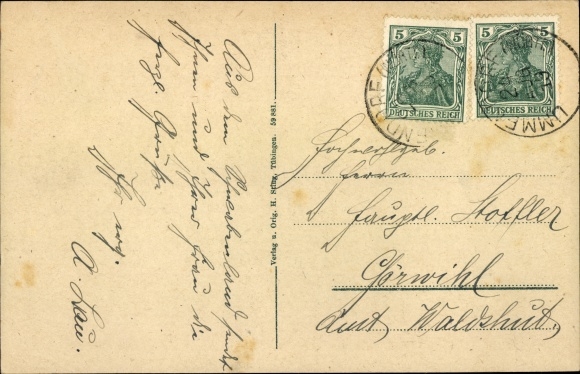 Aus dem Schwabenland sendet
Ihnen und Ihrer Frau die
herzl. Grüße
Ihr erg.
A. Lau.
Verlag u. Orig. H. Sting, Tübingen. 59881.
5 5
DEUTSCHES REICH
5 5
DEUTSCHES REICH
Hochwohlgeb.
Herrn
Hauptl. Stoffler
Görwihl
Amt Waldshut.